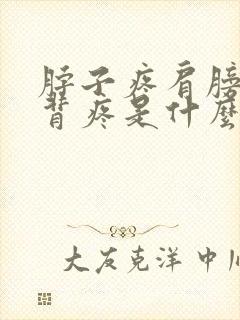 脖子疼肩膀
背疼是什麼
大友克洋中川